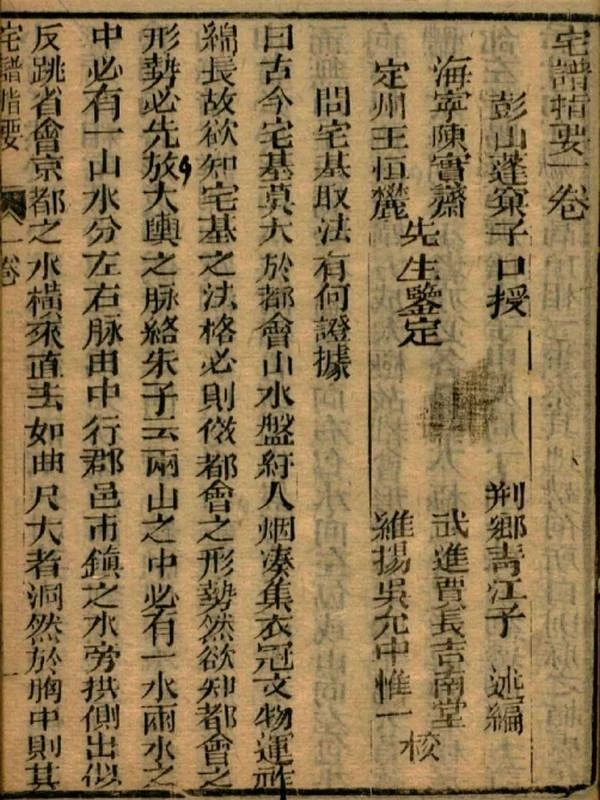 宅譜指要一卷
彭山蓬窠子口授 荆鄉青江子 述編
海寧陳實齋 武進賈長吉南堂
先生鑒定 校
定州王恒麓 維揚吳允中惟一
問宅基取法有何證據
曰古今宅基莫大於都會山水盤紆人烟湊集衣冠文物運祚
綿長故欲知宅基之法格必則倣都會之形勢然欲知都會之
形勢必先放大輿之脉絡朱子云兩山之中必有一水兩水之
中必有一山水分左右脉由中行郡邑市鎮之水旁拱側出似
反跳省會京都之水橫來直去如曲尺大者洞然於胸中則其
宅譜指要 一卷